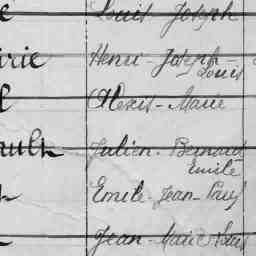 Louis Joseph
Henri - Joseph -
Louis
Alexis - Marie
Julien - Bernard
Emile
Emile - Jean - Paul
Jean - Marie Louis